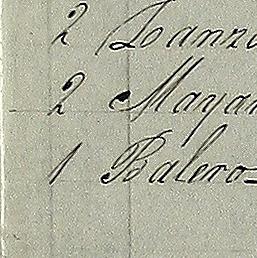 2 Lanzo
2 Mayar
1 Balero